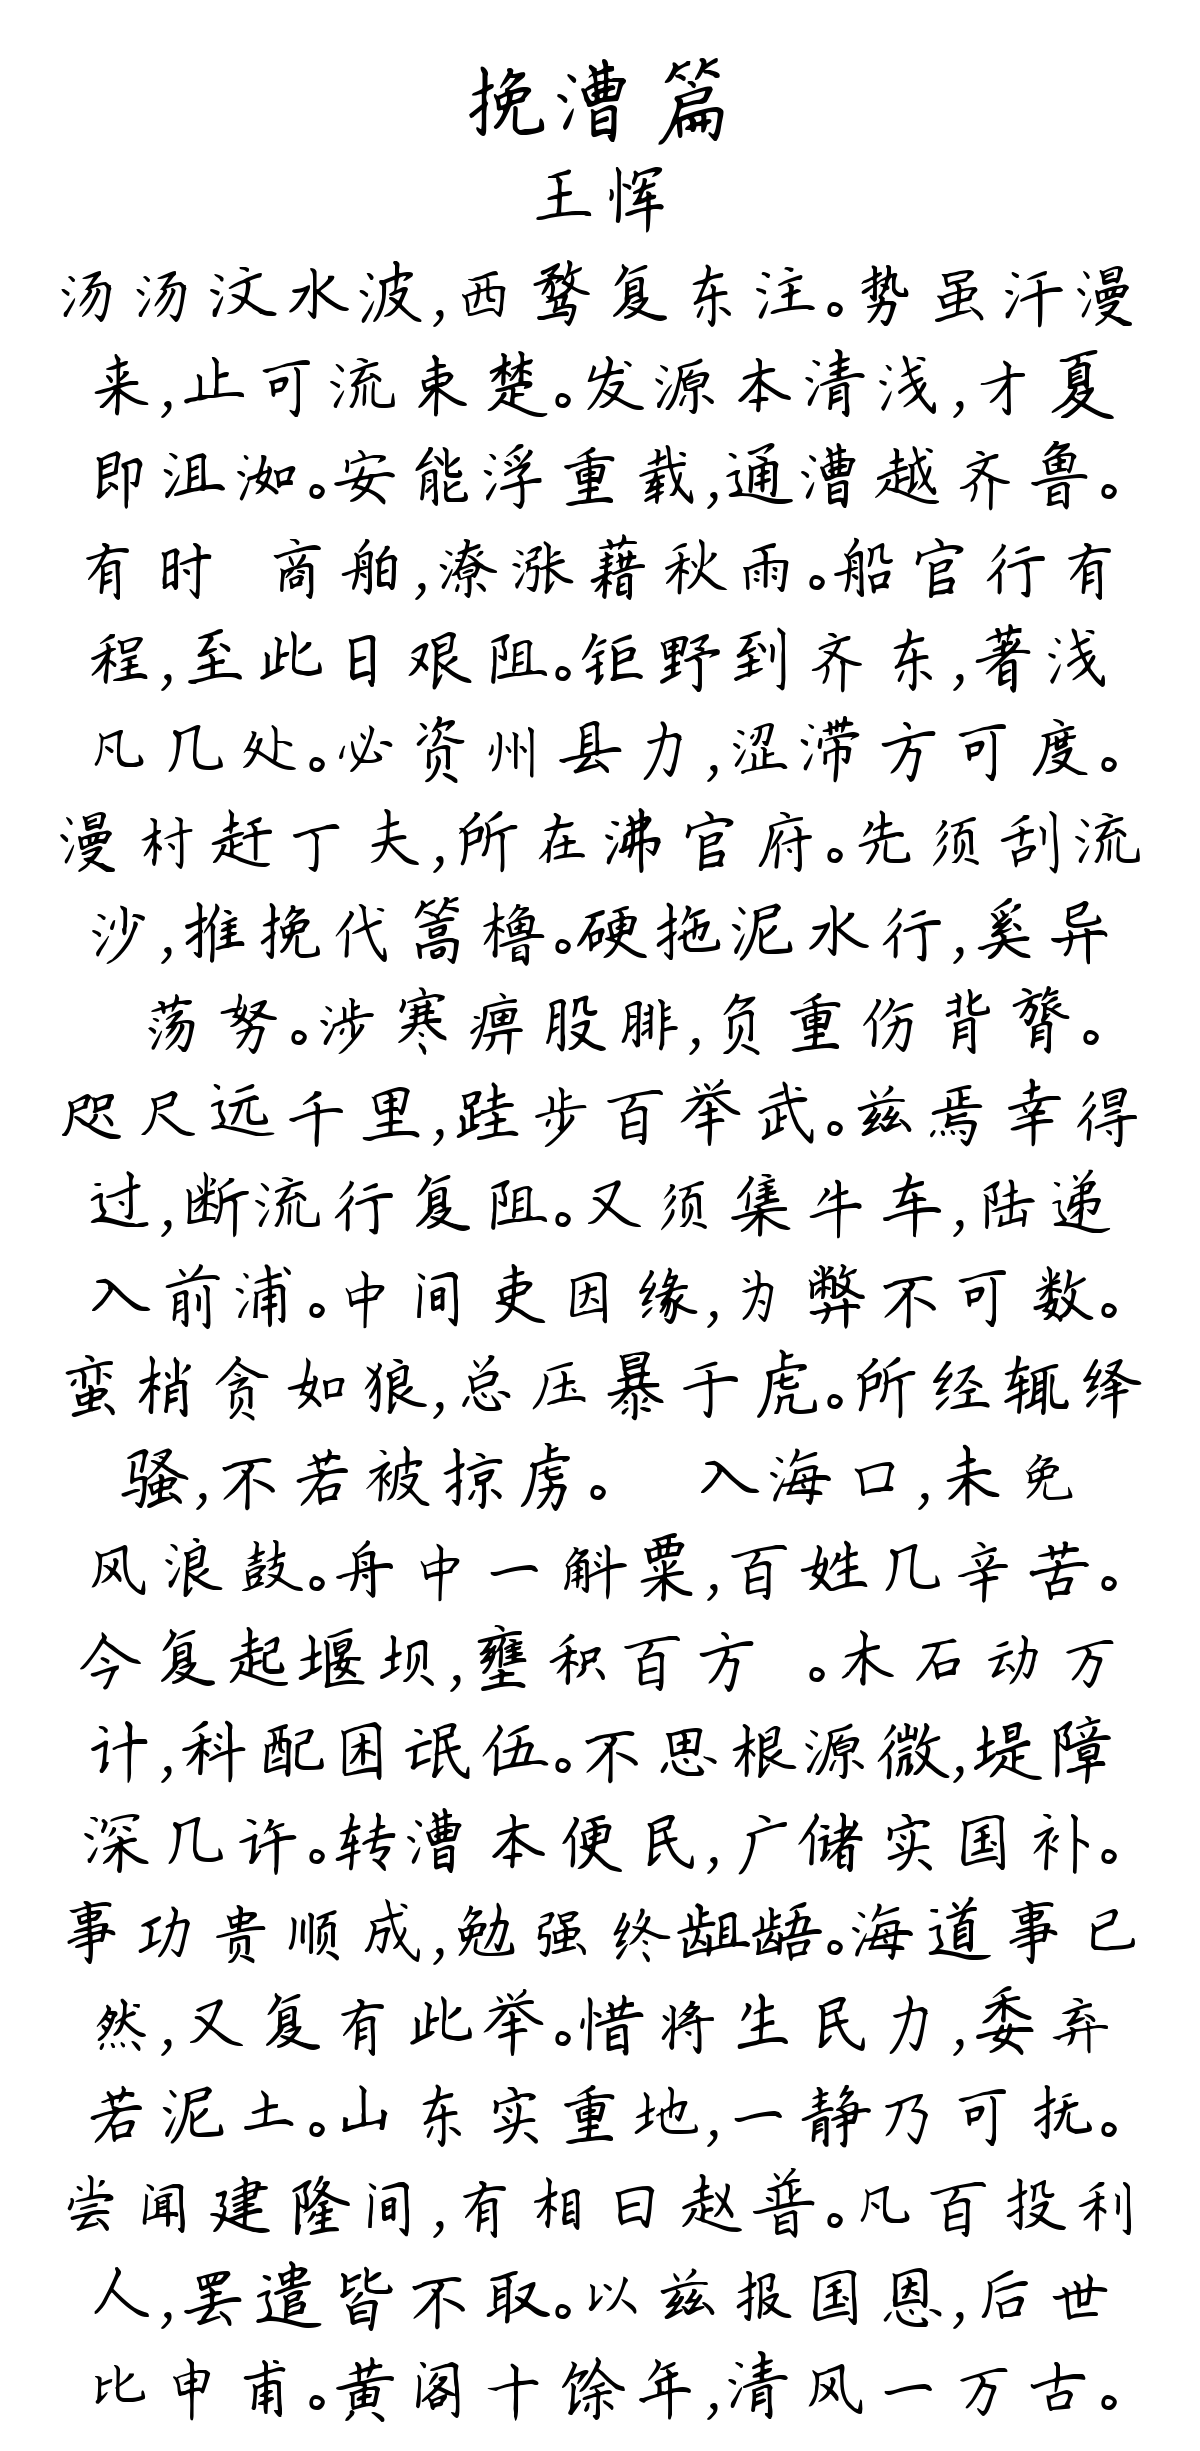 挽漕篇
王恽
汤汤汶水波,西鹜复东注。势虽汗漫
来,止可流束楚。发源本清浅,才夏
即沮洳。安能浮重载,通漕越齐鲁。
有时 商舶,潦涨藉秋雨。船官行有
程,至此日艰阻。钜野到齐东,著浅
凡几处。必资州县力,涩滞方可度。
漫村赶丁夫,所在沸官府。先须刮流
沙,推挽代篙橹。硬拖泥水行,奚异
荡努。涉寒痹股腓,负重伤背膂。
咫尺远千里,跬步百举武。兹焉幸得
过,断流行复阻。又须集牛车,陆递
入前浦。中间吏因缘,为弊不可数。
蛮梢贪如狼,总压暴于虎。所经辄绎
骚,不若被掠虏。 入海口,未免
风浪鼓。舟中一斛粟,百姓几辛苦。
今复起堰坝,壅积百方 。木石动万
计,科配困氓伍。不思根源微,堤障
深几许。转漕本便民,广储实国补。
事功贵顺成,勉强终龃龉。海道事已
然,又复有此举。惜将生民力,委弃
若泥土。山东实重地,一静乃可抚。
尝闻建隆间,有相曰赵普。凡百投利
人,罢遣皆不取。以兹报国恩,后世
比申甫。黄阁十馀年,清风一万古。